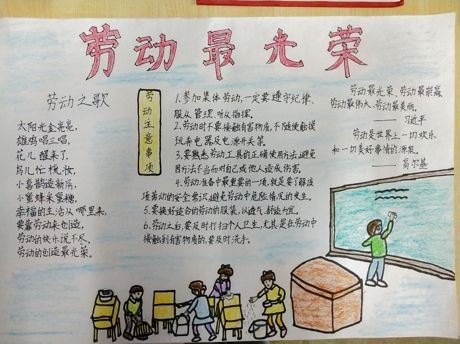 劳动最光荣
劳动之歌
太阳光金亮亮,
雄鸡唱三唱,
花儿醒来了,
鸟儿忙梳妆,
小喜鹊造新房,
小蜜蜂采蜜糖,
幸福的生活从哪里来,
要靠劳动来创造,
劳动的快乐说不尽,
劳动的创造最光荣。
劳动注意事项
1.参加集体劳动,一定要遵守纪律、
服从管理、听从指挥。
2.劳动时不要接触有害物质,不随便触摸
玩弄电器及电源开关。
3.要熟悉劳动工具的正确使用方法,避免
因方法不当而对自己或他人造成伤害。
4.劳动准备中最重要的一项,就是要了解该
项劳动的安全常识,避免劳动中危险情况的发生。
5.要换好适合的劳动的服装,以透气、舒适为宜。
6.劳动之后,要及时打扫个人卫生,尤其是在劳动中
接触到有害物质的,要及时洗手。
劳动最光荣、劳动最崇高
劳动最伟大、劳动最美丽。
——习近平
劳动是世界上一切欢乐
和一切美好事情的源泉。
——高尔基